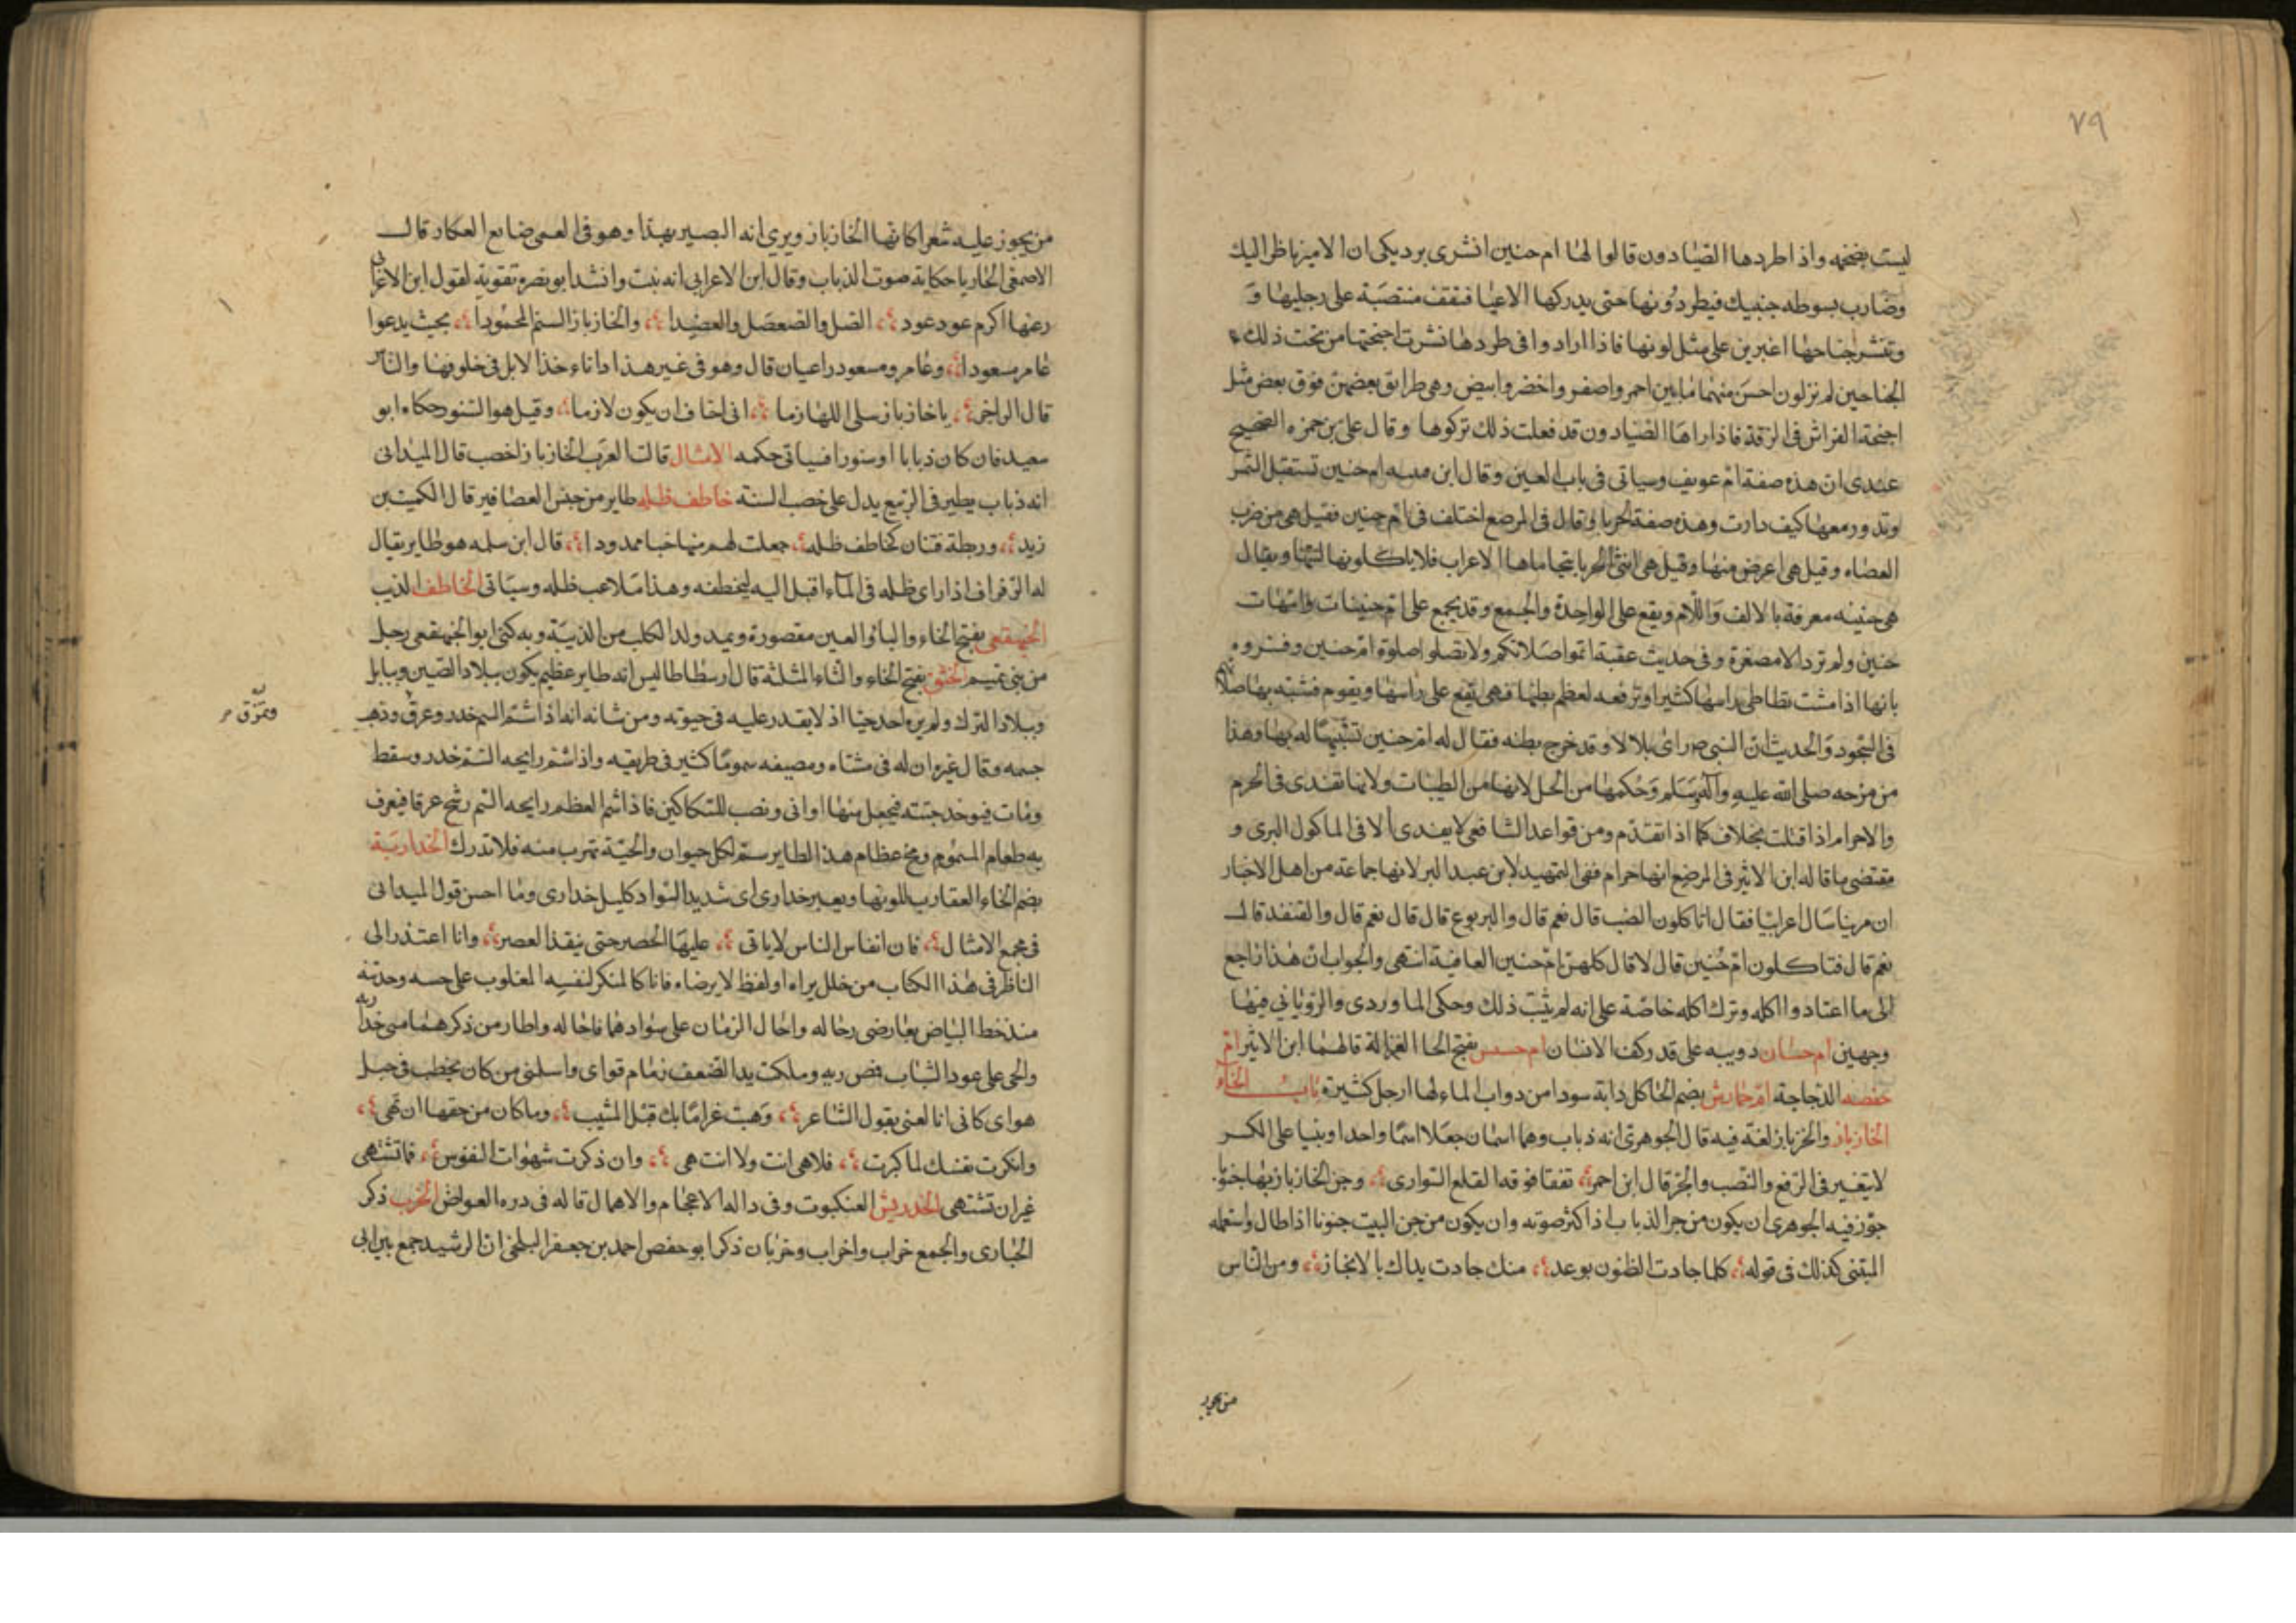 ٧٩
ليست بضخمه واذا طردها الصيادون قالوا لها ام حنين انشرى برديك ان الامير ناظر اليك
وضارب بسوطه جنبيك فيطردونها حتى يدركها الاعيا فتقف منتصبة على رجليها و
وتنشر جناحها اغبرين على مثل لونها فاذا ارادوا فى طردها نشرت اجنحتها من تحت ذلك
الجناحين لم تر لون احسن منهما ما بين احمر واصفر واخضر وابيض وهى طرايق بعضهن فوق بعض مثل
اجنحة الفراش فى الرقة فاذا راها الصيادون قد فعلت ذلك تركوها وقال على بن حمزه الصحيح
عندى ان هذه صفة ام عويف وسياتى فى باب العين وقال ابن ام حنين تستقبل الشمس
وتدور معها كيف دارت وهذه صفة الحربا وقال فى المرصع اختلف فى ام حنين فقيل هى من ضرب
العضاه وقيل هى اعرض منها وقيل هى انثى الحربا يتحاماها الاعراب فلا ياكلونها لنتنها ويقال
هى حنينه معرفة بالالف واللام ويقع على الواحدة والجمع وقد يجمع على ام حنينات وامهات
حنين ولم ترد الا مصغرة وفى حديث عقبة اتموا صلاتكم ولا تصلوا صلوة ام حنين وفسروه
بانها اذا مشت تطاطى راسها كثيرا وترفعه لعظم بطنها فهى تقع على راسها ويقوم فشبه بها صلاتهم
فى السجود والحديث ان النبى ص راى بلالا وقد خرج بطنه فقال له ام حنين تشبيها له بها وهذا
من مزحه صلى الله عليه وآله وسلم وحكمها من الحل لانها من الطيبات ولانها تفدى فى الحرم
والاحرام اذا قتلت بخلاف كما اذا تقدم ومن قواعد الشافعى لا يفدى الا فى الماكول البرى و
مقتضى ما قاله ابن الاثير فى المرصع انها حرام ففى التمهيد لابن عبد البر لانها جماعة من اهل الاخبار
ان مرينا سال اعرابيا فقال اتاكلون الضب قال نعم قال والبربوع قال قال نعم قال والقنفد قال
نعم قال فتاكلون ام حنين قال لا قال كلهن ام حنين العافية انتهى والجواب ان هذا راجع
الى ما اعتادوا اكله وترك اكله خاصة على انه لم يثبت ذلك وحكى الماوردى والرويانى فيها
وجهين ام حسان دويبه على قدر كف الانسان ام حسيس بفتح الحا الغزالة قالهما ابن الاثير ام
حفصه الدجاجة ام حمارش بضم الحا كل دابة سودا من دواب الماء لها ارجل كثيرة باب الخاء
الخازباز والخزباز لغة فيه قال الجوهرى انه ذباب وهما اسمان جعلا اسما واحدا وبنيا على الكسر
لا يتغير فى الرفع والنصب والجر قال ابن احمر تفقا فوقه القلع السوارى وجن الخازباز بها جنونا
جوز فيه الجوهرى ان يكون من جر الذباب اذا كثر صوته وان يكون من جن البيت جنونا اذا طال واستعمله
المتنبى كذلك فى قوله كلما جادت الظنون بوعد منك جادت يداك بالانجاز ومن الناس
من يجوز
من يجوز عليه شعرا كانها الخازباز ويرى انه البصير بهذا وهو فى العمى ضايع العكاز قال
الاصمعى الخازبا حكاية صوت الذباب وقال ابن الاعرابى انه نبت وانشد ابو نصر تقوية لقول ابن الاعرابى
رعنها اكرم عود عود الصل والصعصل والعضيدا والخازباز السنم المحمودا بحيث يدعوا
عامر مسعودا وعامر ومسعود راعيان قال وهو فى غير هذا داناء خذا لابل فى حلوفها والناس
قال الراجز يا خازباز سلى اللهازما انى اخاف ان يكون لازما وقيل هو السنور حكاه ابو
سعيد فان كان ذبابا او سنورا فسياتى حكمه الامثال قالت العرب الخازباز اخصب قال الميدانى
انه ذباب يطير فى الربيع يدل على خصب السنة خاطف ظله طاير من جنس العصافير قال الكميت بن
زيد وربطة فتنان كخاطف ظله جعلت لهم منها خبا ممدودا قال ابن سلمه هو طاير يقال
له الرفراف اذا راى ظله فى الماء اقبل اليه ليخطفه وهذا ملاعب ظله وسياتى الخاطف الذيب
الخبهقعى بفتح الخاء والبا والعين مقصورة ويمد ولد الكلب من الذيبة وبه كنى ابو الخبهقعى رجل
من بنى تميم الخثق بفتح الخاء والثاء المثلثة قال ارسطاطاليس انه طاير عظيم يكون ببلاد الصين وبابل
وببلاد الترك ولم يره احد حيا اذ لا يقدر عليه فى حيوته ومن شانه انه اذا اشتم السم خدر وعرق وذهب
ويمزق
جسمه وقال غيره ان له فى مشتاه ومصيفه سموما كثير فى طريقه واذا شم رايحه السم خدر وسقط
ومات فيوخذ جثته فيجعل منها اوانى ونصب للسكاكين فاذا شم العظم رايحه السم رشح عرقا فيعرف
به طعام المسموم ومخ عظام هذا الطاير سم لكل حيوان والحية تهرب منه فلا تدرك الخدارية
بضم الخاء العقاب للونها وبعير خدارى اى شديد السواد كليل خدارى وما احسن قول الميدانى
فى مجمع الامثال فان انفاس الناس لا ياتى عليها الحصر حتى ينفذ العصر وانا اعتذر الى
الناظر فى هذا الكتاب من خلل يراه او لفظ لا يرضاه فانا كالمنكر لنفسه المغلوب على حسه وحدته
منذ خط البياض بعارضى رحاله واحال الزمان على سوادهما فاحاله واطار من ذكرهما منى خداريه
والحى على عود الشباب فمص ريه وملكت يد الضعف زمام قواى واسلمنى من كان يخطب فى حبل
هواى كانى انا لعنى بقول الشاعر وهبت غراما بك قبل المشيب وما كان من حقها ان تهى
وانكرت نفسك لما كبرت فلا هى انت ولا انت هى وان ذكرت شهوات النفوس فما تشتهى
غير ان تشتهى الخدريش العنكبوت وفى داله الاعجام والاهمال قاله فى دره الغواص الخرب ذكر
الحبارى والجمع خراب واخراب وخربان ذكر ابو حفص احمد بن جعفر البلخى ان الرشيد جمع بين ابى